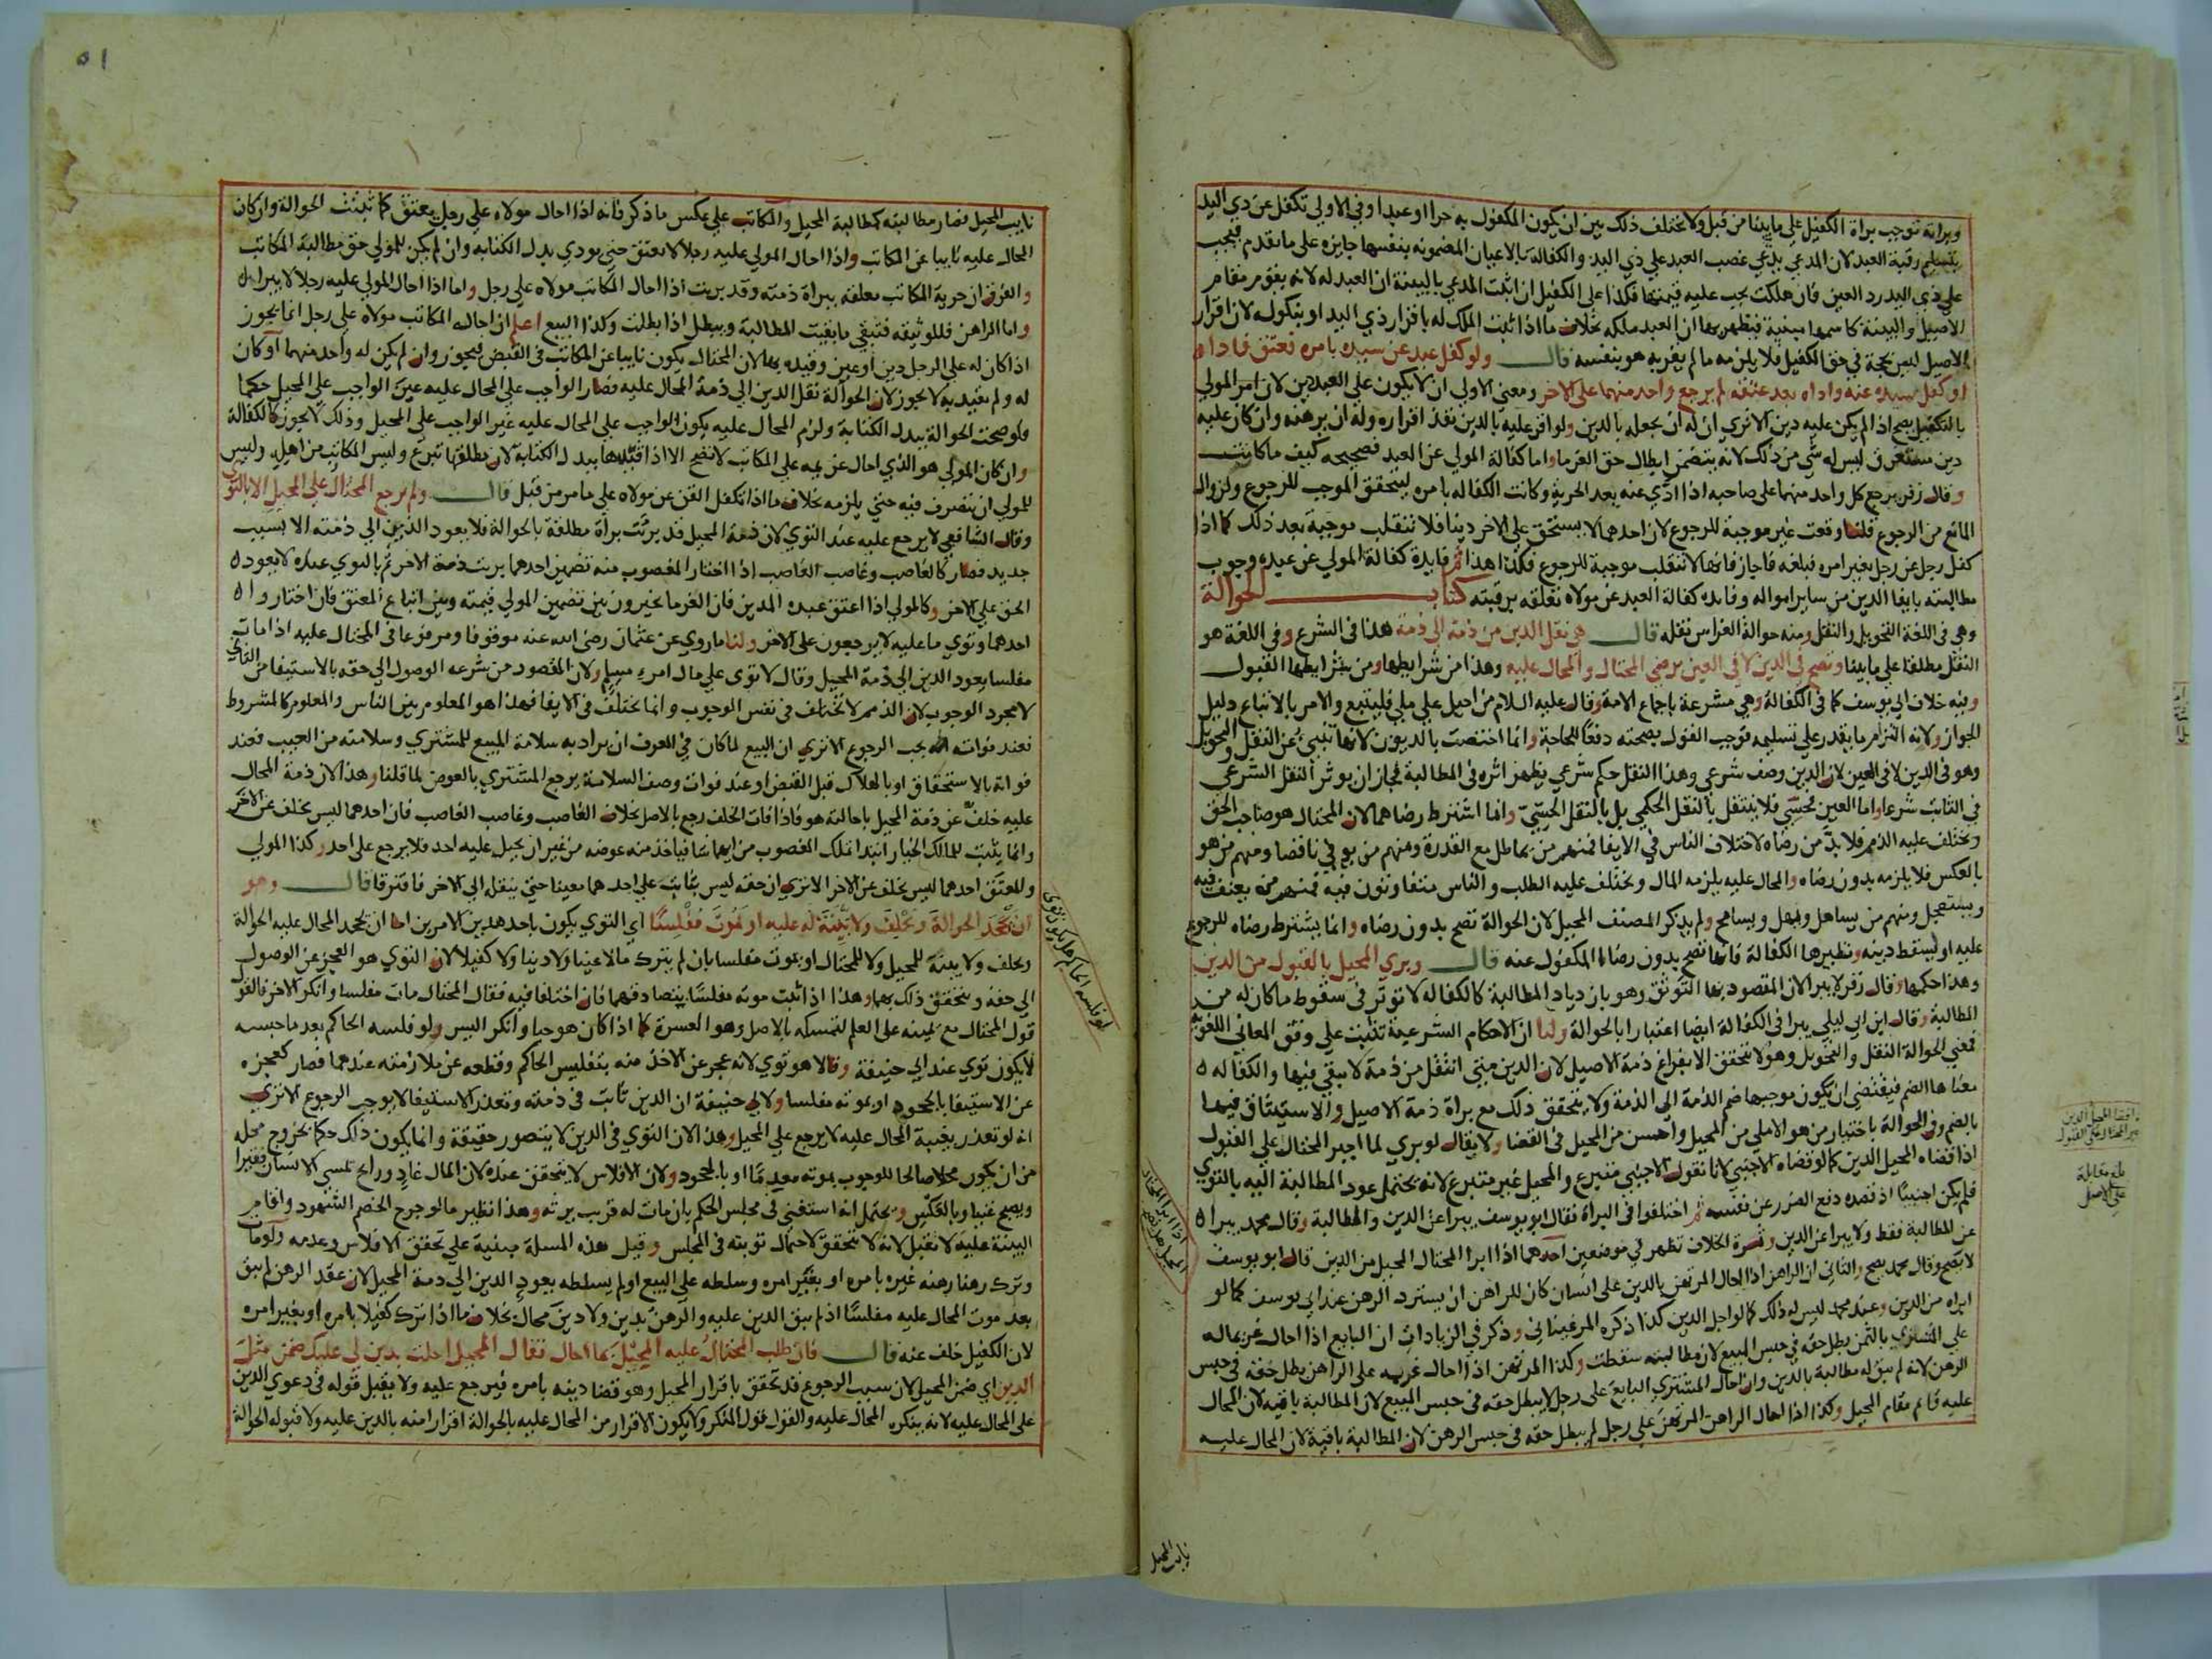 وبراته توجب براة الكفيل على مابينا من قبل ولا يختلف ذلك بين ان يكون المكفول به حرا او عبدا وفي الاولى تكفل عن ذي اليد
بتسليم رقبة العبد لان المدعي يدعي غصب العبد على ذي اليد والكفالة بالاعيان المضمونة بنفسها جايزة على ما تقدم فيجب
على ذي اليد رد العين فان هلكت يجب عليه قيمتها فكذا على الكفيل ان اثبت المدعي بالبينة ان العبد له لانه يقوم مقام
الاصيل والبينة كاسمها مبينة فيظهر بها ان العبد ملكه بخلاف ما اذا ثبت الملك له باقرار ذي اليد او بنكوله لان اقرار
الاصيل ليس بحجة في حق الكفيل فلا يلزمه ما لم يقر به هو بنفسه قال ولو كفل عبد عن سيده بامره فعتق فاداه
او كفل سيده عنه واداه بعد عتقه لم يرجع واحد منهما على الاخر ومعنى الاولى ان لا يكون على العبد دين لان امر المولى
بالتكفيل يصح اذا لم يكن عليه دين الا ترى ان له ان يجعله بالدين ولو اقر عليه بالدين نفذ اقراره وله ان يرهنه وان كان عليه
دين مستغرق ليس له شي من ذلك لانه يتضمن ابطال حق الغرما واما كفالة المولى عن العبد فصحيحه كيف ما كانت
وقال زفر يرجع كل واحد منهما على صاحبه اذا ادي عنه بعد الحرية وكانت الكفاله بامره ليتحقق الموجب للرجوع ولزوال
المانع من الرجوع قلنا وقعت غير موجبة للرجوع لان احدهما لا يستحق على الاخر دينا فلا تنقلب موجبة بعد ذلك كما اذا
كفل رجل عن رجل بغير امره فبلغه فاجاز فانها لا تنقلب موجبة للرجوع فكذا هذا ثم فايدة كفالة المولى عن عبده وجوب
مطالبته بايفا الدين من ساير امواله وفايده كفالة العبد عن مولاه تعلقه برقبته كتاب الحوالة
وهي في اللغة التحويل والنقل ومنه حوالة الغراس نقله قال هي نقل الدين من ذمة الى ذمة هذا في الشرع وفي اللغة هو
النقل مطلقا على مابينا وتصح في الدين لا في العين برضى المحتال والمحال عليه وهذا من شرايطها ومن شرايطها القبول
وفيه خلاف ابي يوسف كما في الكفالة وهي مشرعة باجماع الامة وقال عليه السلام من احيل على ملي فليتبع والامر بالاتباع دليل
الجواز ولانه التزام ما يقدر على تسليمه فوجب القول بصحته دفعا للحاجة وانما اختصت بالديون لانها تنبئ عن النقل والتحويل
وهو في الدين لا في العين لان الدين وصف شرعي وهذا النقل حكم شرعي يظهر اثره في المطالبة فجاز ان يوثر النقل الشرعي
في الثابت شرعا واما العين فحسي فلا ينتقل بالنقل الحكمي بل بالنقل الحسي وانما اشترط رضاهما لان المحتال هو صاحب الحق
وتختلف عليه الذمم فلا بد من رضاه لاختلاف الناس في الايفا فمنهم من يماطل مع القدرة ومنهم من يوفي ناقصا ومنهم من هو
بالعكس فلا يلزمه بدون رضاه والمحال عليه يلزمه المال ويختلف عليه الطلب والناس متفاوتون فيه فمنهم من يعنف فيه
ويستعجل ومنهم من يساهل ويمهل ويسامح ولم يذكر المصنف المحيل لان الحوالة تصح بدون رضاه وانما يشترط رضاه للرجوع
عليه او ليسقط دينه ونظيرها الكفالة فانها تصح بدون رضا المكفول عنه قال وبرئ المحيل بالقبول من الدين
وهذا حكمها وقال زفر لا يبرا لان المقصود بها التوثق وهو بازدياد المطالبة كالكفاله لا توثر في سقوط ما كان له من
المطالبة وقال ابن ابي ليلى يبرا في الكفالة ايضا اعتبارا بالحوالة ولنا ان الاحكام الشرعية تثبت على وفق المعاني اللغويه
فمعنى الحوالة النقل والتحويل وهو لا يتحقق الا بفراغ ذمة الاصيل لان الدين متى انتقل من ذمة لا يبقى فيها والكفاله
معناها الضم فيقتضي ان يكون موجبها ضم الذمة الى الذمة ولا يتحقق ذلك مع براة ذمة الاصيل والاستيثاق فيها
بالضم وفي الحوالة باختيار من هو الاملى من المحيل واحسن من المحيل في القضا ولا يقال لو برئ لما اجبر المحتال على القبول
اذا قضاه المحيل الدين كما لو قضاه الاجنبي لانا نقول الاجنبي متبرع والمحيل غير متبرع لانه يحتمل عود المطالبة اليه بالتوى
فلم يكن اجنبيا اذ قصده دفع الضرر عن نفسه ثم اختلفوا في البراة فقال ابو يوسف يبرا عن الدين والمطالبة وقال محمد يبرا
عن المطالبة فقط ولا يبرا عن الدين وثمرة الخلاف تظهر في موضعين احدهما اذا ابرا المحتال المحيل من الدين قال ابو يوسف
لا يصح وقال محمد يصح والثاني ان الراهن اذا احال المرتهن بالدين على انسان كان للراهن ان يسترد الرهن عند ابي يوسف كما لو
ابراه من الدين وعند محمد ليس له ذلك كما لو اجل الدين كذا ذكره المرغيناني وذكر في الزيادات ان البايع اذا احال غريماله
على المشتري بالثمن يبطل حقه في حبس المبيع لان مطالبته سقطت وكذا المرتهن اذا احال غريمه على الراهن بطل حقه في حبس
الرهن لانه لم يبق له مطالبة بالدين وان احال المشتري البايع على رجل لا يبطل حقه في حبس المبيع لان المطالبة باقيه لان المحال
عليه قايم مقام المحيل وكذا اذا احال الراهن المرتهن على رجل لم يبطل حقه في حبس الرهن لان المطالبة باقية لان المحال عليه
اذا ابرا المحتال
نايب المحيل
٥١
نايب المحيل فصار مطالبته كمطالبة المحيل والمكاتب على عكس ما ذكر فانه اذا احال مولاه على رجل يعتق كما ثبتت الحوالة وان كان
المحال عليه نايبا عن المكاتب واذا احال المولى عليه رجلا لا يعتق حتى يودي بدل الكتابه وان لم يكن للمولى حق مطالبة المكاتب
والفرق ان حرية المكاتب معلقه ببراة ذمته وقد بريت اذا احال المكاتب مولاه على رجل واما اذا احال المولى عليه رجلا لا يبرا
واما الراهن فللوثيقه فتبقى ما بقيت المطالبة ويبطل اذا بطلت وكذا البيع اعلم ان احالة المكاتب مولاه على رجل انما يجوز
اذا كان له على الرجل دين او عين وقيده بها لان المحتال يكون نايبا عن المكاتب في القبض فيجوز وان لم يكن له واحد منهما او كان
له ولم يقيد به لا يجوز لان الحوالة نقل الدين الى ذمة المحال عليه فصار الواجب على المحال عليه عين الواجب على المحيل حكما
ولو صحت الحوالة ببدل الكتابة ولزم المحال عليه يكون الواجب على المحال عليه غير الواجب على المحيل وذلك لا يجوز كالكفالة
وان كان المولى هو الذي احال غريمه على المكاتب لا تصح الا اذا قيدها ببدل الكتابة لان مطلقها تبرع وليس المكاتب من اهله وليس
للمولى ان يتصرف فيه حتى يلزمه بخلاف ما اذا تكفل القن عن مولاه على ما مر من قبل قال ولم يرجع المحتال على المحيل الا بالتوى
وقال الشافعي لا يرجع عليه عند التوى لان ذمة المحيل قد برئت براة مطلقة بالحوالة فلا يعود الدين الى ذمته الا بسبب
جديد فصار كالغاصب وغاصب الغاصب اذا اختار المغصوب منه تضمين احدهما بريت ذمة الاخر ثم بالتوى عنده لا يعود
الحق على الاخر وكالمولى اذا اعتق عبده المدين فان الغرما يخيرون بين تضمين المولى قيمته وبين اتباع المعتق فان اختاروا
احدهما وتوي ما عليه لا يرجعون على الاخر ولنا ما روي عن عثمان رضى الله عنه موقوفا ومرفوعا في المحتال عليه اذا مات
مفلسا يعود الدين الى ذمة المحيل وقال لا توى على مال امرء مسلم ولان المقصود من شرعه الوصول الى حقه بالاستيفا من الثاني
لا مجرد الوجوب لان الذمم لا تختلف في نفس الوجوب وانما تختلف في الايفا فهذا هو المعلوم بين الناس والمعلوم كالمشروط
فعند فواته يجب الرجوع الا ترى ان البيع لما كان في العرف ان يراد به سلامة المبيع للمشتري وسلامته من العيب فعند
فواته بالاستحقاق او بالهلاك قبل القبض او عند فوات وصف السلامة يرجع المشتري بالعوض لما قلنا وهذا لان ذمة المحال
عليه خلف عن ذمة المحيل باحالته هو فاذا فات الخلف رجع بالاصل بخلاف الغاصب وغاصب الغاصب فان احدهما ليس بخلف عن الاخر
وانما يثبت للمالك الخيار ابتدا تملك المغصوب من ايهما شا فياخذ منه عوضه من غير ان يحيل عليه احد فلا يرجع على احد وكذا المولى
وللمعتق احدهما ليس بخلف عن الاخر الا ترى ان حقه ليس بثابت على احدهما معينا حتى ينقله الى الاخر فافترقا قال وهو
ان يجحد الحوالة ويحلف ولا بينة له عليه او يموت مفلسا اي التوى يكون باحد هذين الامرين اما ان يجحد المحال عليه الحوالة
ويحلف ولا بينة للمحيل ولا للمحتال او يموت مفلسا بان لم يترك مالا عينا ولا دينا ولا كفيلا لان التوى هو العجز عن الوصول
الى حقه ويتحقق ذلك بهما وهذا اذا ثبت موته مفلسا بتصادقهما فان اختلفا فيه فقال المحتال مات مفلسا وانكر الاخر فالقول
قول المحتال مع يمينه على العلم لتمسكه بالاصل وهو العسرة كما اذا كان هو حيا وانكر اليسر ولو فلسه الحاكم بعد ما حبسه
لا يكون توى عند ابي حنيفة وقالا هو توى لانه عجز عن الاخذ منه بتفليس الحاكم وقطعه عن ملازمته عندهما فصار كعجزه
عن الاستيفا بالجحود او بموته مفلسا ولابي حنيفة ان الدين ثابت في ذمته وتعذر الاستيفا لا يوجب الرجوع الا ترى
انه لو تعذر بغيبة المحال عليه لا يرجع على المحيل وهذا لان التوى في الدين لا يتصور حقيقة وانما يكون ذلك حكما بخروج محله
من ان يكون محلا صالحا للوجوب بموته معدما او بالجحود ولان الافلاس لا يتحقق عنده لان المال غاد ورائح تمسي الانسان فقيرا
ويصبح غنيا وبالعكس ويحتمل انه استغنى في مجلس الحكم بان مات له قريب يرثه وهذا نظير ما لو جرح الخصم الشهود واقام
البينة عليه لا تقبل لانه لا يتحقق لاحتمال توبته في المجلس وقيل هذه المسلة مبنية على تحقق الافلاس وعدمه ولو مات
وترك رهنا رهنه غيره بامره او بغير امره وسلطه على البيع اولم يسلطه يعود الدين الى ذمة المحيل لان عقد الرهن لم يبق
بعد موت المحال عليه مفلسا اذ لم يبق الدين عليه والرهن بدين ولا دين محال بخلاف ما اذا ترك كفيلا بامره او بغير امره
لان الكفيل خلف عنه قال فان طلب المحتال عليه المحيل بما احال فقال المحيل احلت بدين لي عليك ضمن مثل
الدين اي ضمن المحيل لان سبب الرجوع قد تحقق باقرار المحيل وهو قضا دينه بامره فيرجع عليه ولا يقبل قوله في دعوى الدين
على المحال عليه لانه ينكره المحال عليه والقول قول المنكر ولا يكون الاقرار من المحال عليه بالحوالة اقرارا منه بالدين عليه ولا قبوله الحوالة